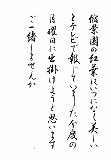 悠景園の紅葉はいつになく美しい
とテレビで報じていました今度の
月曜日に出掛けようと思います
ご一緒しませんか